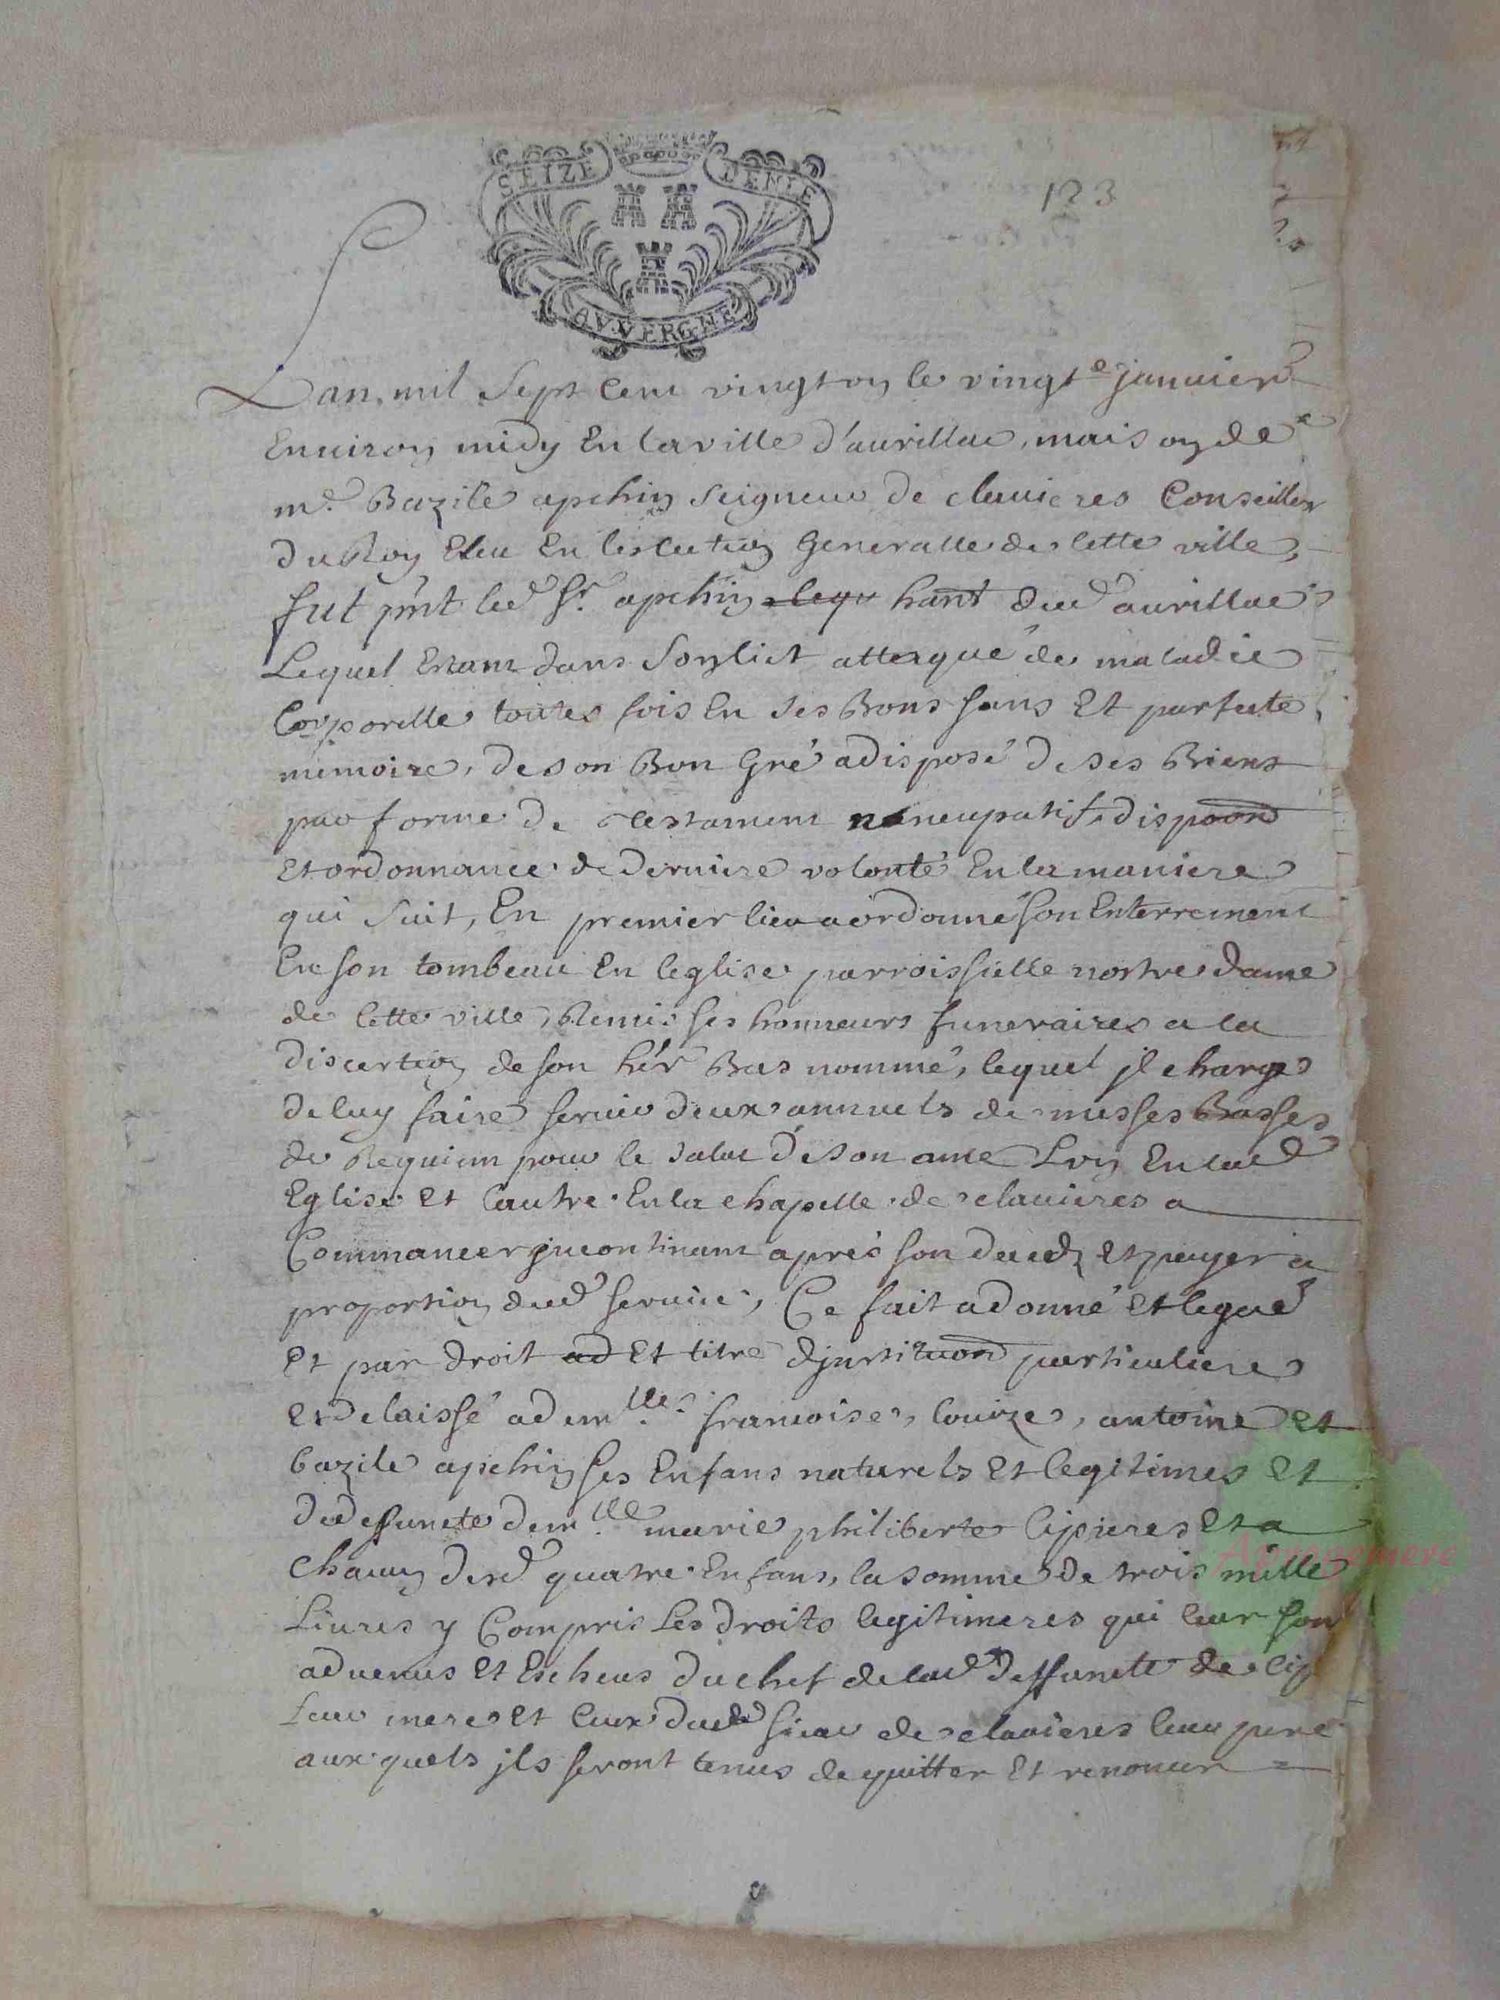 SEIZE DENIE
123
AVVERGNE
Lan mil sept cent vingt on le vingte janvier
Environ midy En la ville d'aurillac, maison de
mr Bazile apchin seigneur de clavieres Conseiller
du Roy Eleu En leslection Generalle de cette ville,
fut pnt led sr apchin lequ hant dud aurillac
Lequel Estant dans son lict attaqué de maladie
Corporelle toutes fois En ses Bons sans Et parfaite
memoire, de son Bon Gré a disposé de ses Biens
par forme de testament noncupatif dispoon
Et ordonnance de derniere volonté En la maniere
qui suit, En premier lieu a ordonné son Enterrement
En son tombeau En leglise parroissielle nostre dame
de cette ville, Remis ses honneurs funeraires a la
discertion de son her Bas nommé, lequel jl charge
de luy faire servir deux annuels de messes Basses
de Requiem pour le salut de son ame Lun En lad
Eglise Et lautre En la chapelle de clavieres a
Commancer jncontinant aprés son decedz Et payer a
proportion dud service, Ce fait a donné Et legué
Et par droit ad Et titre djnstituon particuliere
Et delaissé a demlles francoise, louize, antoine Et
bazile apchin ses Enfans naturels Et legitimes Et
de deffuncte demlle marie philiberte Cipieres Et a
chacun desd quatre Enfans, la somme de trois mille
Livres y Compris Les droits legitimeres qui leur son
advenus Et Escheus du chef de lad deffuncte de Cip
Leur mere Et Ceux dud sieur de clavieres leur pere
aux quels jls seront tenus de quitter Et renoncer
Auprogemere